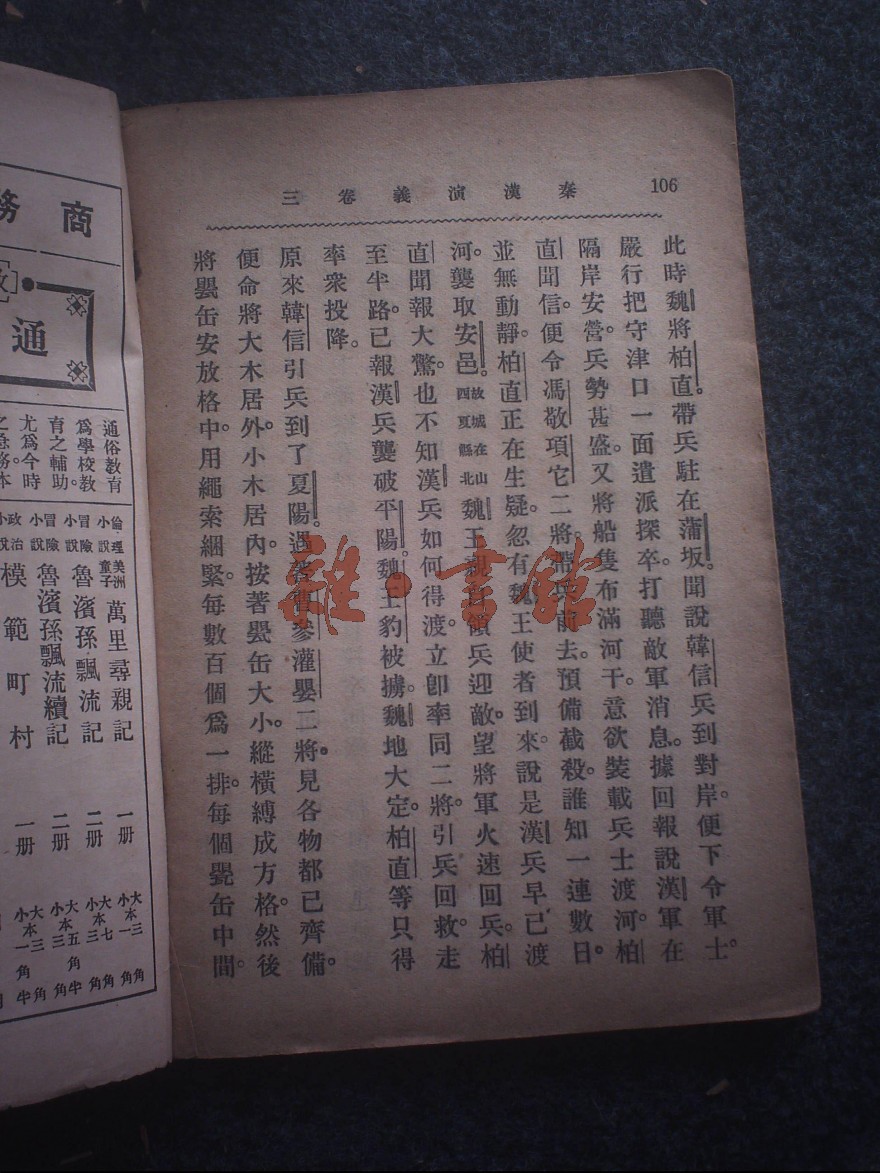 106
秦漢演義卷三
此時魏將柏直。帶兵駐在蒲坂。聞說韓信兵到對岸。便下令軍士。
嚴行把守津口一面遣派探卒。打聽敵軍消息。據回報說漢軍在
隔岸安營。兵勢甚盛。又將船隻布滿河干。意欲裝載兵士渡河。柏
直聞信。便令馮敬項它二將。帶兵前去。預備截殺。誰知一連數日。
並無動靜。柏直正在生疑。忽有魏王使者到來。說是漢兵早已渡
河。襲取安邑。故城在山西夏縣北魏王親自領兵迎敵。望將軍火速回兵。柏
直聞報大驚。也不知漢兵如何得渡。立卽率同二將。引兵回救。走
至半路。已報漢兵襲破平陽。魏王豹被擄。魏地大定。柏直等只得
率衆投降。
原來韓信引兵到了夏陽。遇著曹參灌嬰二將。見各物都已齊備。
便命將大木居外。小木居內。按著罌缶大小。縱橫縛成方格。然後
將罌缶安放格中。用繩索綑緊。每數百個爲一排。每個罌缶中間。
雜·書館
商務
通
通俗教育
爲學校教
育之輔助。
尤爲今時
之急務。本
倫理小說 美洲童子萬里尋親記 一册 大本三角 小本一角
冒險小說 魯濱孫飄流記 二册 大本七角 小本三角
冒險小說 魯濱孫飄流續記 二册 大本五角 小本三角半
政治小說 模範町村 一册 大本三角 小本一角半